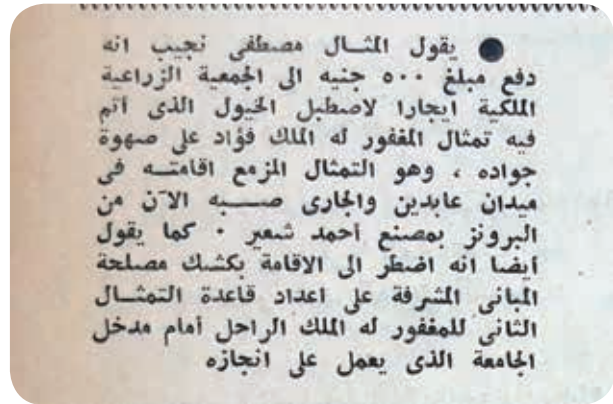 ● يقول المثـال مصطفى نجيب انه
دفع مبلغ ٥٠٠ جنيه الى الجمعية الزراعية
الملكية ايجارا لاصطبل الخيول الذى أتم
فيه تمثال المغفور له الملك فؤاد على صهوة
جواده ، وهو التمثال المزمع اقامتـه فى
ميدان عابدين والجارى صـــبه الآن من
البرونز بمصنع أحمد شعير ٠ كما يقول
أيضا انه اضطر الى الاقامة بكشك مصلحة
المبانى المشرفة على اعداد قاعدة التمثـال
الثانى للمغفور له الملك الراحل أمام مدخل
الجامعة الذى يعمل على انجازه